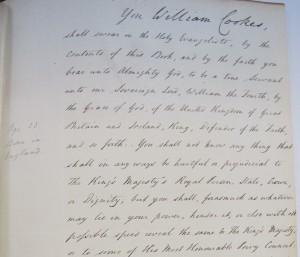 You William Cookes,
shall swear on the Holy Evangelists, by the
contents of this Book, and by the faith you
bear unto Almighty God, to be a true Servant
unto our Sovereign Lord, William the Fourth, by
the Grace of God, of the United Kingdom of Great
Britain and Ireland, King, Defender of the Faith,
and so forth. You shall not know any thing that
shall in any ways be hurtful or prejudicial to
The King's Majesty's Royal Person, State, Crown,
or Dignity, but you shall, forasmuch as whatever
may lie in your power, hinder it, or else with all
possible speed reveal the same to The King's Majesty,
or to some of His Most Honourable Privy Council.
Born in
England